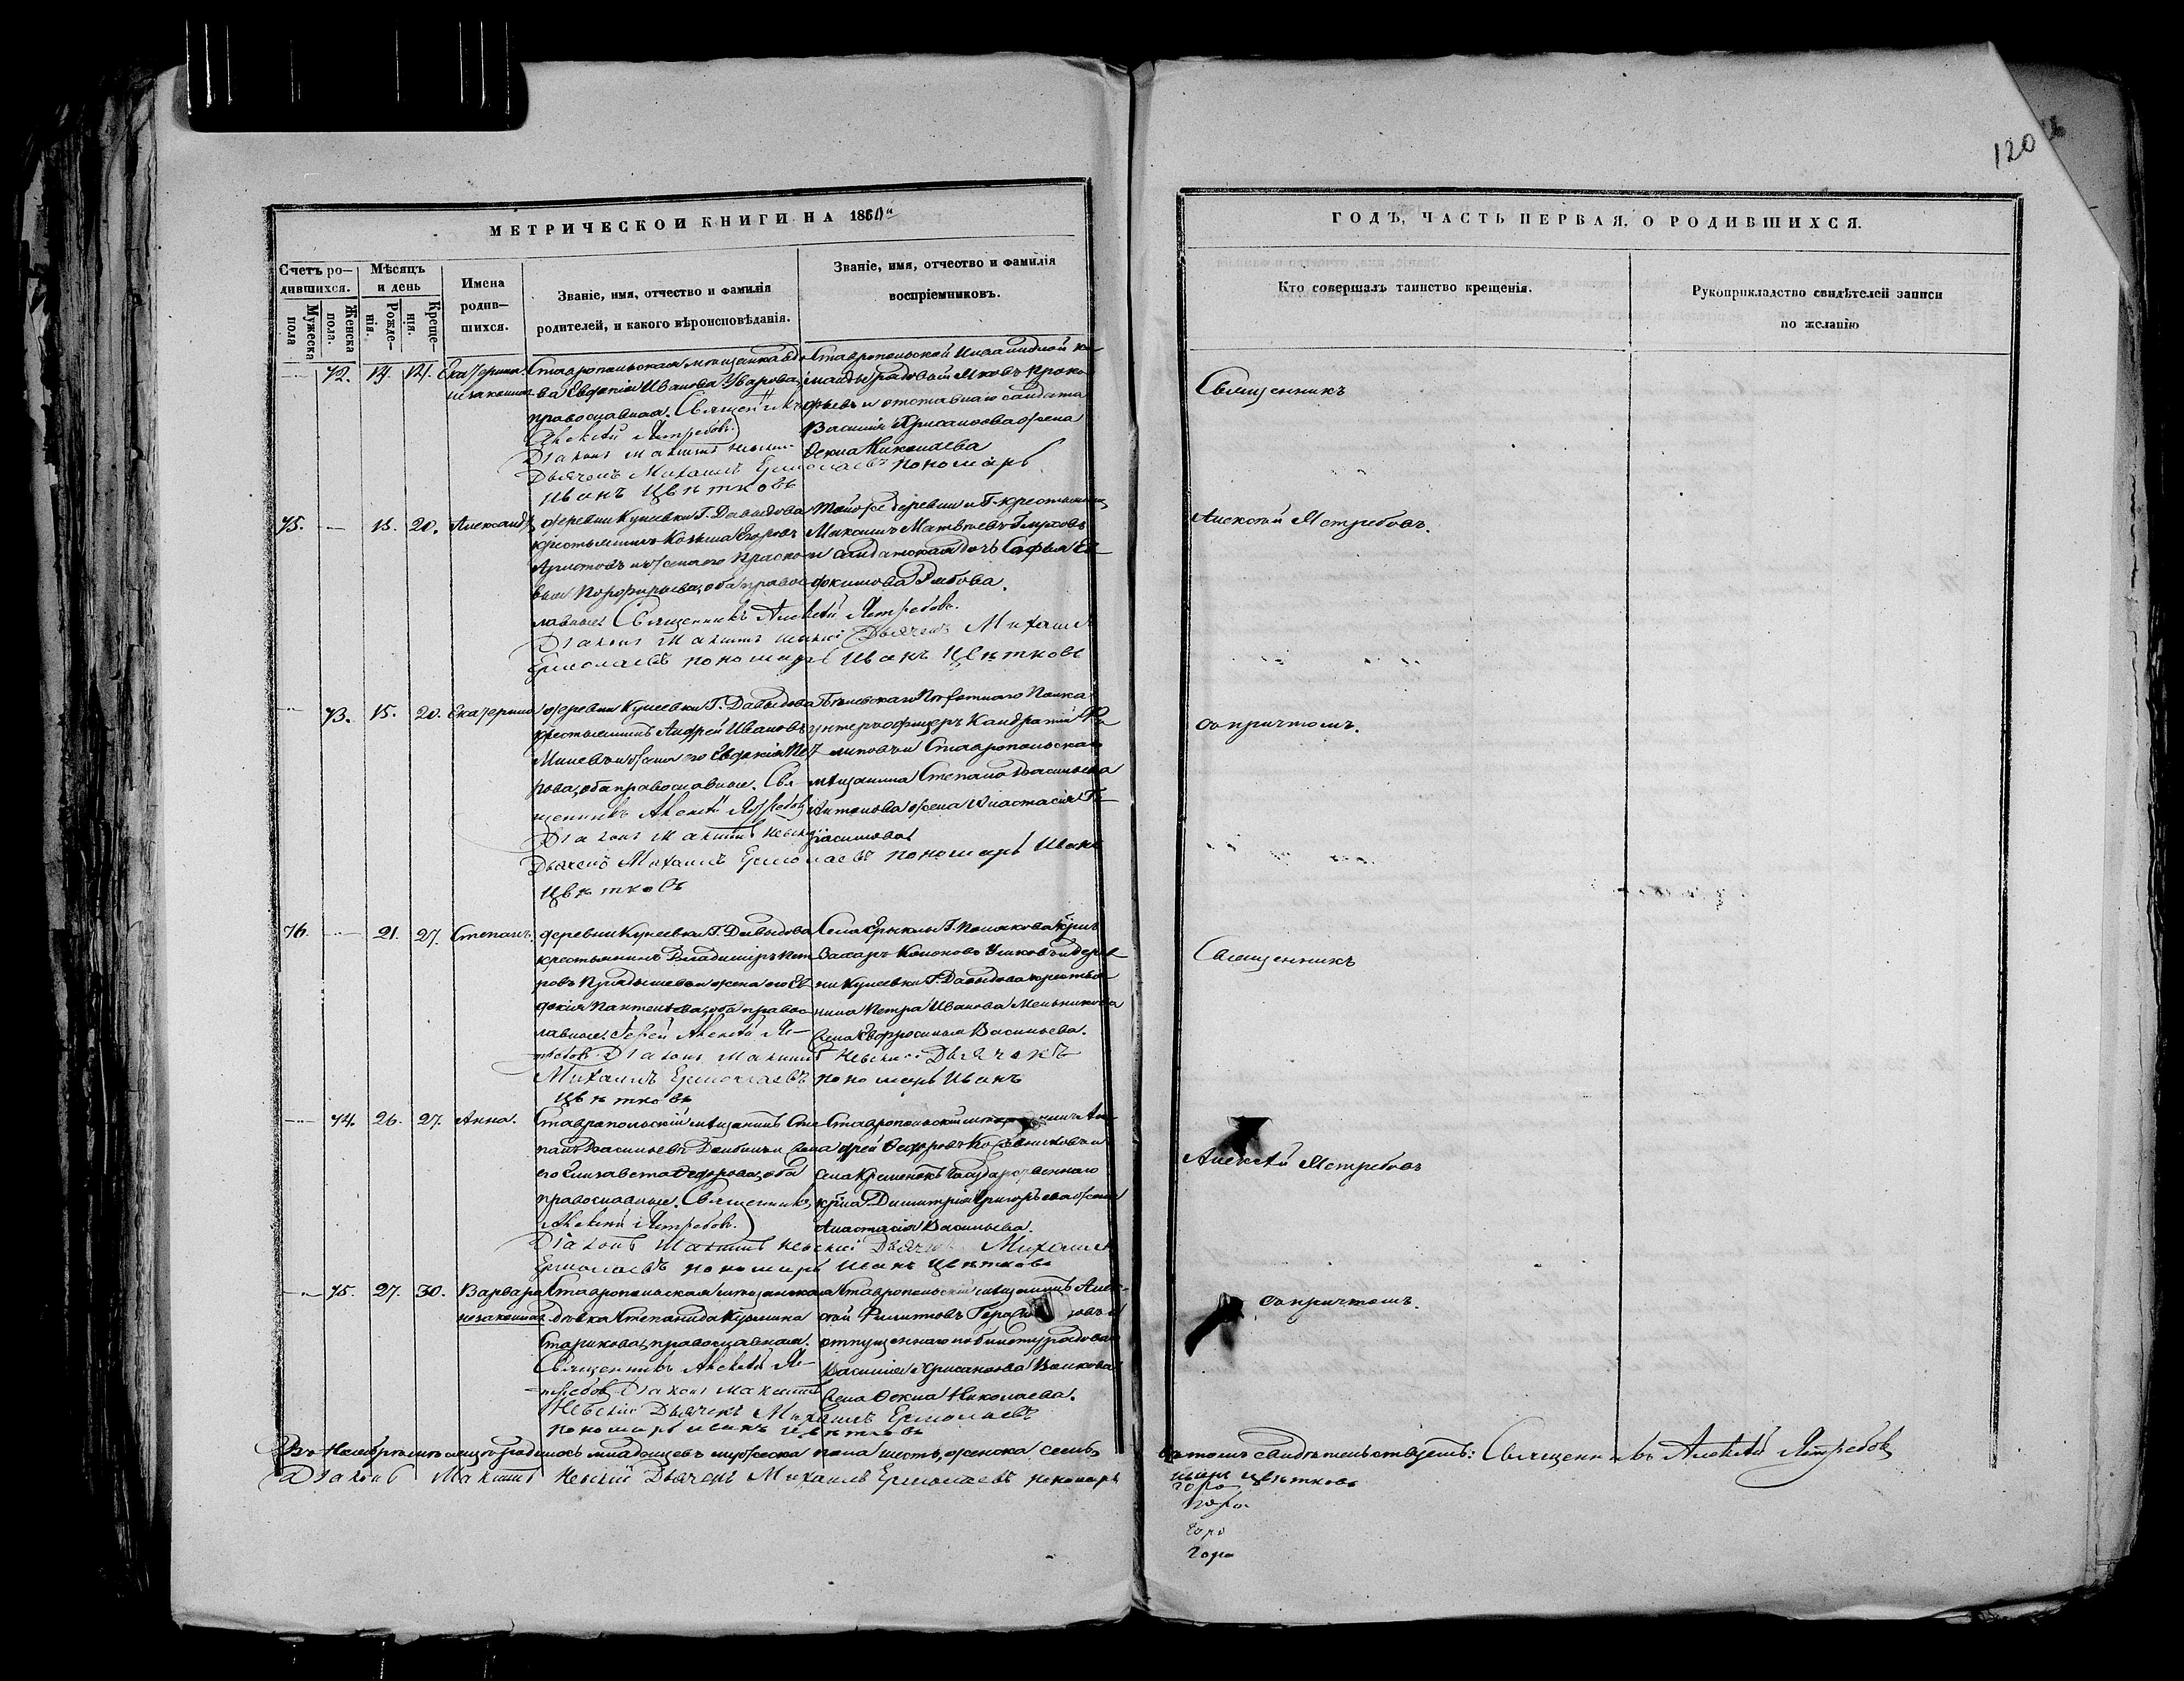 120
МЕТРИЧЕСКОЙ КНИГИ НА 1860й
ГОДЪ, ЧАСТЬ ПЕРВАЯ, О РОДИВШИХСЯ.
Счетъ ро-
дившихся.
Мужеска
пола
Женска
пола.
Мѣсяцъ
и день
Рожде-
нія.
Креще-
нія.
Имена
родив-
шихся.
Званіе, имя, отчество и фамилія
родителей, и какого вѣроисповѣданія.
Званіе, имя, отчество и фамилія
воспріемниковъ.
Кто совершалъ таинство крещенія.
Рукоприкладство свидѣтелей записи
по желанію
72.
Екатерина
незаконная
Ставропольская мѣщанка
ва Евдокія Иванова Уварова,
православная. Священникъ
Алексѣй Ястребовъ.
Діаконъ Максимъ Невскій
Дьячекъ Михаилъ Ермолаевъ пономарь
Иванъ Цвѣтковъ
Ставропольской Инвалидной ко
манды рядовой Яковъ Проко
фьевъ и отставнаго солдата
Василія Хрисанова жена
Фекла Николаева
Священникъ
75. — 15. 20. Александръ
деревни Кунеевки Г. Давыдова
крестьянинъ Козьма Егоровъ
и жена его Праско
вья Порфирьева, оба правос
лавные Священникъ Алексѣй Ястребовъ.
Діаконъ Максимъ Невскій Дьячекъ Михаилъ
Ермолаевъ пономарь Иванъ Цвѣтковъ
Тойже деревни и Г. крестьянинъ
Максимъ Матвѣевъ Глуховъ
и солдатская дочь Софья Ев
фимова Рябова.
Алексѣй Ястребовъ.
— 73. 15. 20. Екатерина
деревни Кунеевки Г. Давыдова
крестьянинъ Андрей Ивановъ
Минеевъ и жена его Евдокія Пет
рова, оба православные. Свя
щенникъ Алексѣй Ястребовъ
Діаконъ Максимъ Невскій
Дьячекъ Михаилъ Ермолаевъ пономарь Иванъ
Цвѣтковъ
Пѣхотнаго Полка
унтеръ офицеръ Кандратій Фи
липовъ и Ставропольскаго
мѣщанина Степана Васильева
Антонова жена Анастасія Ге
расимова
съ причтомъ.
76. — 21. 27. Степанъ.
деревни Кунеевки Г. Давыдова
крестьянинъ Владиміръ Пет
ровъ и жена его Ев
докія Пантелѣева, оба правос
лавные. Іерей Алексѣй Яс-
требовъ Діаконъ Максимъ Невскій Дьячекъ
Михаилъ Ермолаевъ пономарь Иванъ
Цвѣтковъ
Села Ерыклы Г. Полякова
Захаръ Кононовъ и дерев
ни Кунеевки Г. Давыдова крестья
нина Петра Иванова Мельникова
жена Евфросинья Васильева.
Священникъ
— 74. 26. 27. Анна.
Ставропольскій мѣщанинъ Сте
панъ Васильевъ и жена
его Елизавета Федорова, оба
православные. Священникъ
Алексѣй Ястребовъ.
Діаконъ Максимъ Невскій Дьячекъ Михаилъ
Ермолаевъ пономарь Иванъ Цвѣтковъ
Ставропольскій Ан
дрей Федоровъ и
села Кременокъ Государственнаго
Димитрія Григорьева жена
Анастасія Васильева.
Алексѣй Ястребовъ
— 75. 27. 30. Варвара
незаконная
Ставропольская мѣщанская
дѣвка Степанида Кузмина
Старикова, православная.
Священникъ Алексѣй Яс-
требовъ Діаконъ Максимъ
Невскій Дьячекъ Михаилъ Ермолаевъ
пономарь Иванъ Цвѣтковъ
Ставропольскій мѣщанинъ Алек-
сѣй Филиповъ
отпущеннаго по билету рядоваго
Василія Хрисанова Волкова
жена Фекла Николаева.
съ причтомъ.
Въ Ноябрѣ мѣсяцѣ родилось младенцевъ мужеска пола шесть, женска семь,
въ томъ свидѣтельствуетъ: Священникъ Алексѣй Ястребовъ
Діаконъ Максимъ Невскій Дьячекъ Михаилъ Ермолаевъ пономарь
Иванъ Цвѣтковъ